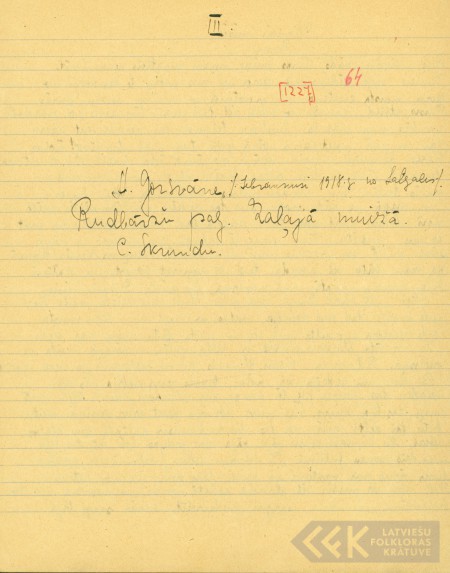 III
[1227] 64
A. Goršvāne, /Iebraukusi 1918.g no Latgales/.
Rudbāržu pag. Zaļajā muižā.
C. Skrundu.
LATVIEŠU
FOLKLORAS
KRĀTUVE